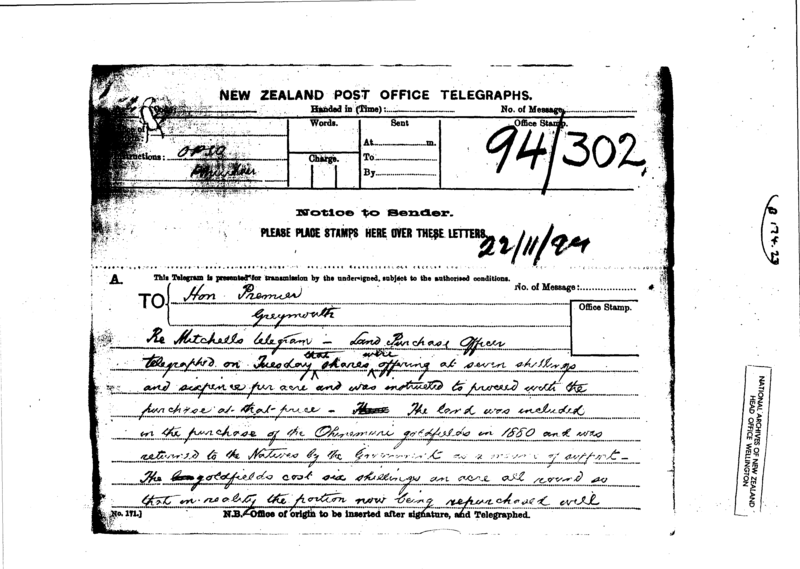 NEW ZEALAND POST OFFICE TELEGRAPHS.
Handed in (Time):
No. of Message
Words.
Sent
Office Stamp.
At m.
94/302
Charge.
To
By
Notice to Sender.
PLEASE PLACE STAMPS HERE OVER THESE LETTERS.
22/11/94
P 174.23
A.
This Telegram is presented for transmission by the undersigned, subject to the authorised conditions.
No. of Message:
TO
Hon Premier
Greymouth
Office Stamp.
Re Mitchells telegram - Land Purchase Officer
telegraphed on Tuesday that shares were offering at seven shillings
and sixpence per acre and was instructed to proceed with the
purchase at that price - The land was included
in the purchase of the Ohinemuri goldfields in 1880 and was
returned to the Natives by the Government as a means of support -
The goldfields cost six shillings an acre all round so
that in reality the portion now being repurchased will
No. 171.]
N.B. Office of origin to be inserted after signature, and Telegraphed.
NATIONAL ARCHIVES OF NEW ZEALAND
HEAD OFFICE WELLINGTON